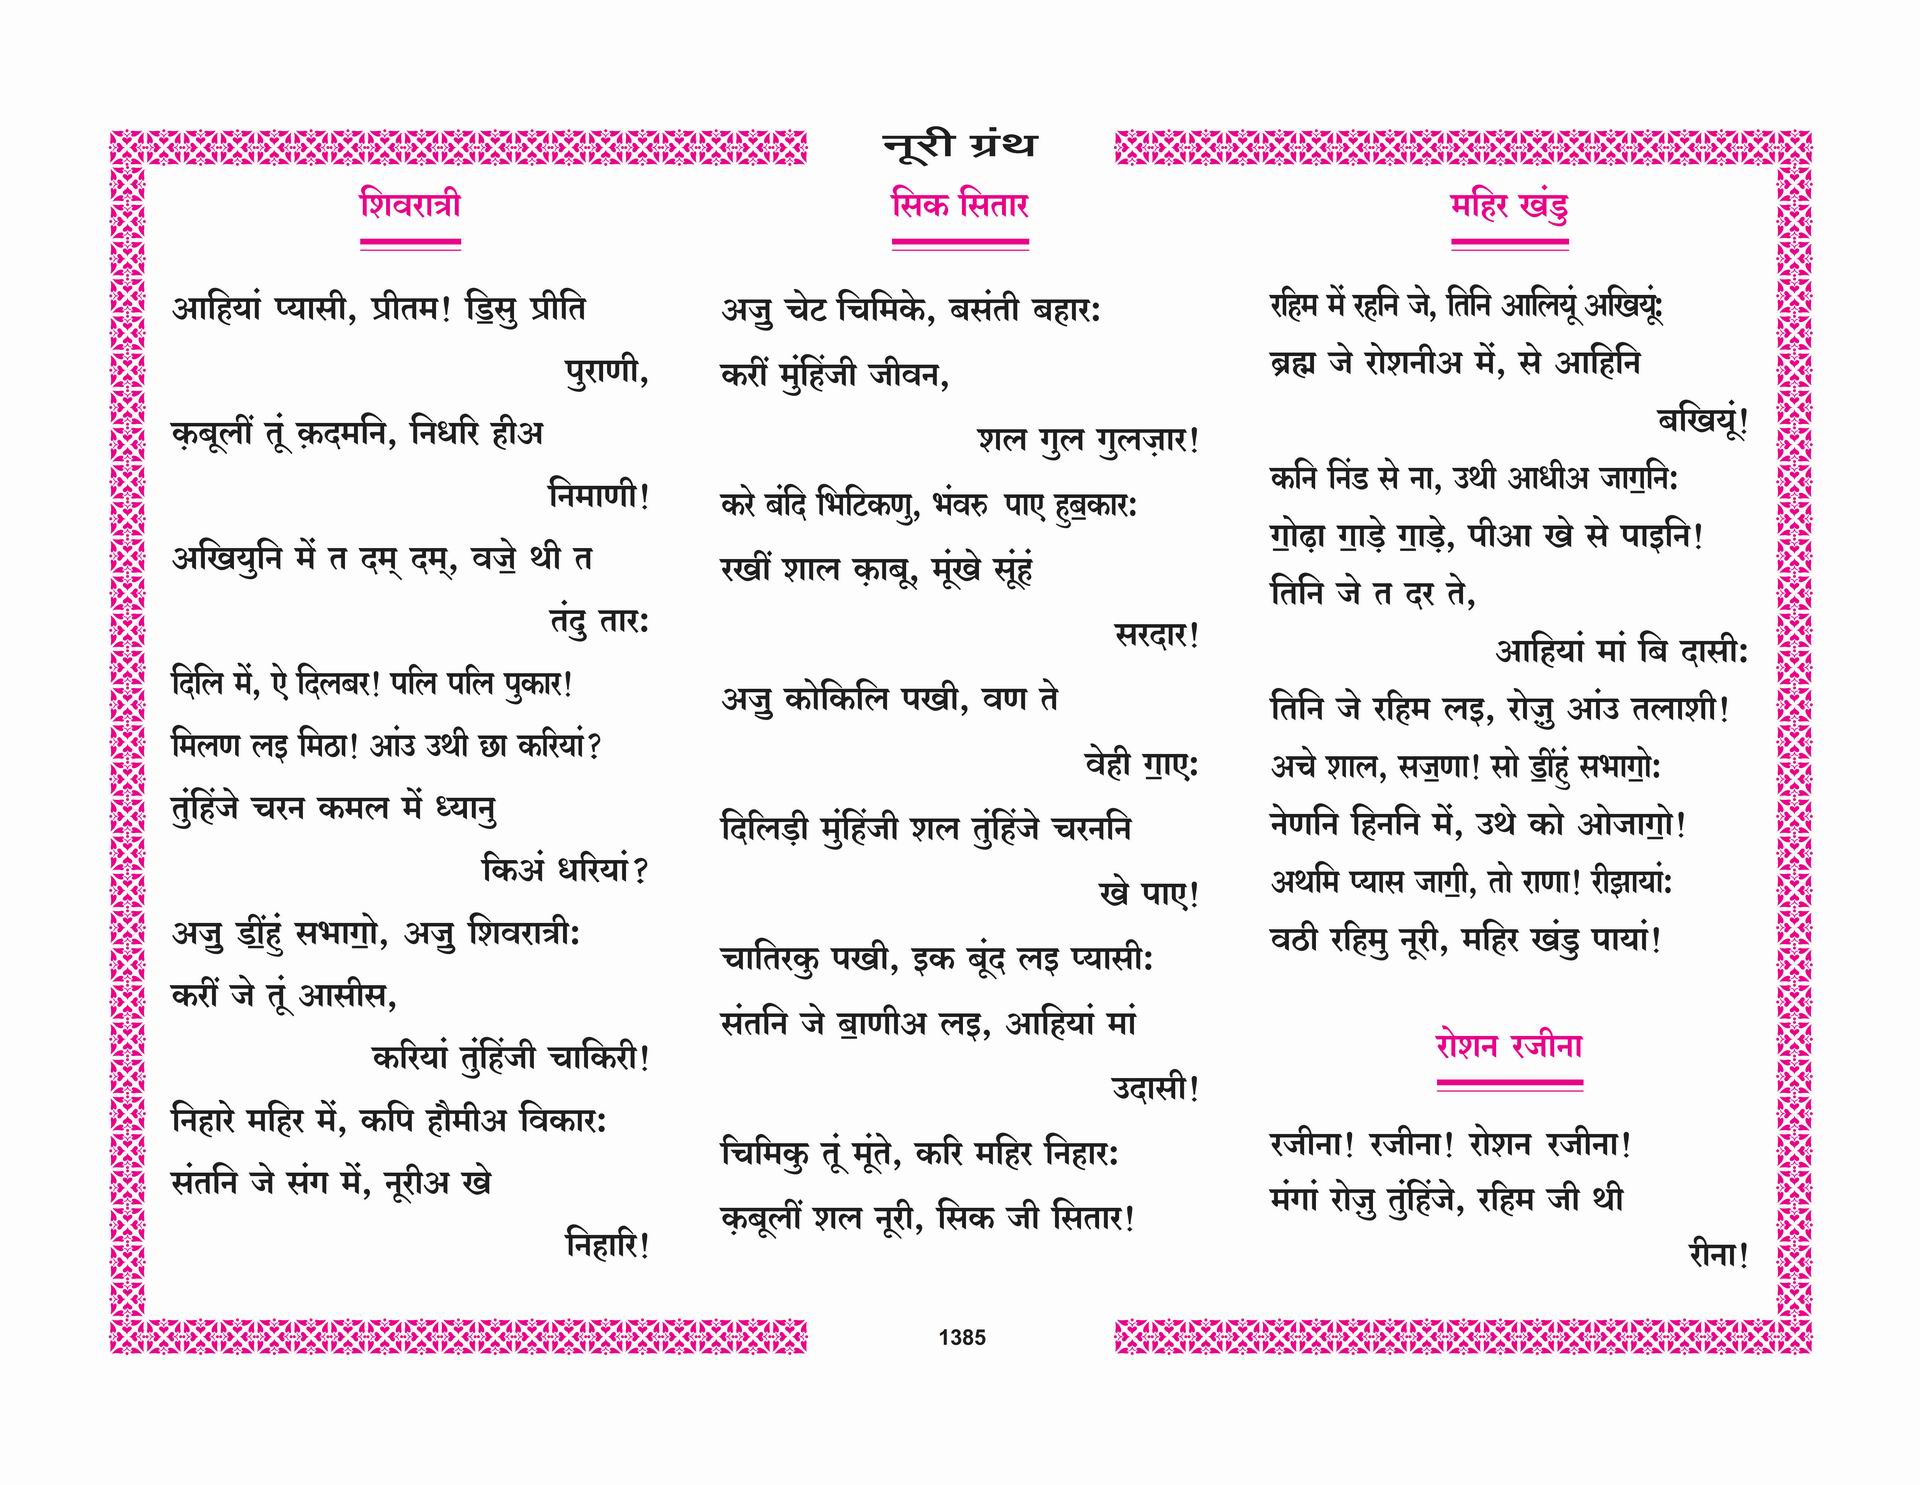 नूरी ग्रंथ
शिवरात्री
आहियां प्यासी, प्रीतम! ॾिसु प्रीति
पुराणी,
क़बूलीं तूं क़दमनि, निधरि हीअ
निमाणी!
अखियुनि में त दम् दम्, वॼे थी त
तंदु तार:
दिलि में, ऐ दिलबर! पलि पलि पुकार!
मिलण लइ मिठा! आंउ उथी छा करियां?
तुंहिंजे चरन कमल में ध्यानु
किअं धरियां?
अॼु ॾींहुं सभाॻो, अॼु शिवरात्री:
करीं जे तूं आसीस,
करियां तुंहिंजी चाकिरी!
निहारे महिर में, कपि हौमीअ विकार:
संतनि जे संग में, नूरीअ खे
निहारि!
सिक सितार
अॼु चेट चिमिके, बसंती बहार:
करीं मुंहिंजी जीवन,
शल गुल गुलज़ार!
करे बंदि भिटिकणु, भंवरु पाए हुॿकार:
रखीं शाल क़ाबू, मूंखे सूंहं
सरदार!
अॼु कोकिलि पखी, वण ते
वेही ॻाए:
दिलिड़ी मुंहिंजी शल तुंहिंजे चरननि
खे पाए!
चातिरकु पखी, इक बूंद लइ प्यासी:
संतनि जे ॿाणीअ लइ, आहियां मां
उदासी!
चिमिकु तूं मूंते, करि महिर निहार:
क़बूलीं शल नूरी, सिक जी सितार!
महिर खंडु
रहिम में रहनि जे, तिनि आलियूं अखियूं:
ब्रह्म जे रोशनीअ में, से आहिनि
बखियूं!
कनि निंड से ना, उथी आधीअ जाॻनि:
ॻोढ़ा ॻाड़े ॻाड़े, पीआ खे से पाइनि!
तिनि जे त दर ते,
आहियां मां बि दासी:
तिनि जे रहिम लइ, रोज़ु आंउ तलाशी!
अचे शाल, सॼणा! सो ॾींहुं सभाॻो:
नेणनि हिननि में, उथे को ओजाॻो!
अथमि प्यास जाॻी, तो राणा! रीझायां:
वठी रहिमु नूरी, महिर खंडु पायां!
रोशन रजीना
रजीना! रजीना! रोशन रजीना!
मंगां रोज़ु तुंहिंजे, रहिम जी थी
रीना!
1385